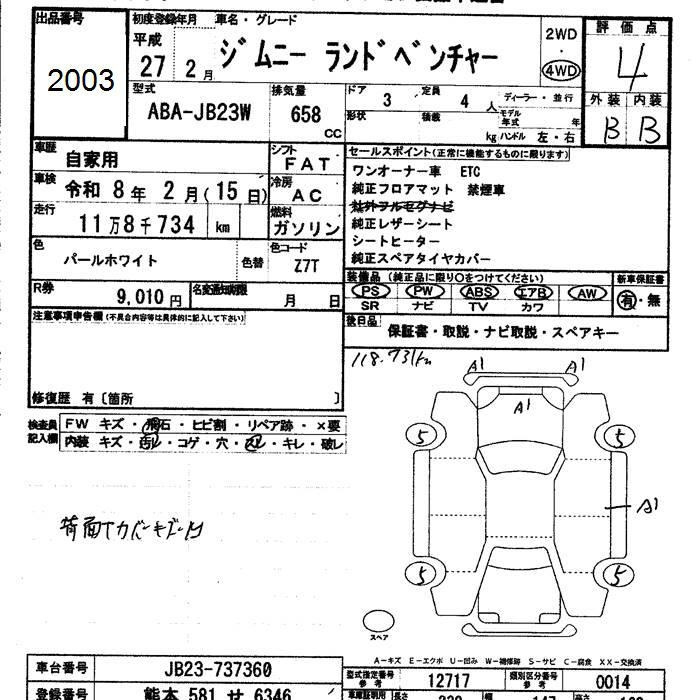 出品番号
2003
初度登録年月 車名・グレード
平成
27 2月 ジムニー ランドベンチャー
2WD
・
4WD
評価点
4
外装 内装
B B
型式
ABA-JB23W
排気量
658
cc
ドア 3
定員 4 人
形状
積載 kg
ディーラー・並行
モデル年式 年
ハンドル 左・右
車歴
自家用
シフト
FAT
車検
令和 8年 2月(15日)
冷房
AC
走行
11万8千734 km
燃料
ガソリン
色
パールホワイト
色替
色コード
Z7T
R券
9,010円
名変通知期限
月 日
セールスポイント(正常に機能するものに限ります)
ワンオーナー車 ETC
純正フロアマット 禁煙車
社外フルセグナビ
純正レザーシート
シートヒーター
純正スペアタイヤカバー
装備品(純正品に限り○をつけてください)
新車保証書
PS PW ABS エアB AW
SR ナビ TV カワ
有・無
後日品
保証書・取説・ナビ取説・スペアキー
注意事項申告欄(不具合内容等は具体的に記入して下さい)
修復歴 有〔箇所 〕
検査員
記入欄
FW キズ・飛石・ヒビ割・リペア跡・×要
内装 キズ・汚レ・コゲ・穴・スレ・キレ・破レ
118.731km
A1 A1
A1
5 5
A1
5 5
スペア
A-キズ E-エクボ U-凹み W-補修跡 S-サビ C-腐食 XX-交換済
車台番号
JB23-737360
型式指定番号
参考
12717
類別区分番号
参考
0014
登録番号
熊本 581 せ 6346